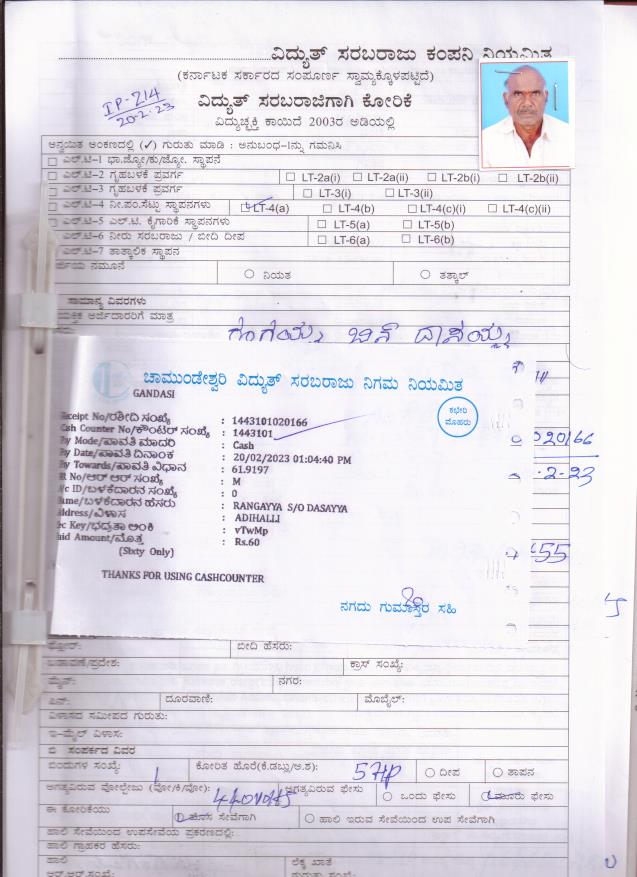 ವಿದ್ಯುತ್ ಸರಬರಾಜು ಕಂಪನಿ ನಿಯಮಿತ
(ಕರ್ನಾಟಕ ಸರ್ಕಾರದ ಸಂಪೂರ್ಣ ಸ್ವಾಮ್ಯಕ್ಕೊಳಪಟ್ಟಿದೆ)
IP-214
20-2-23
ವಿದ್ಯುತ್ ಸರಬರಾಜಿಗಾಗಿ ಕೋರಿಕೆ
ವಿದ್ಯುಚ್ಛಕ್ತಿ ಕಾಯಿದೆ 2003ರ ಅಡಿಯಲ್ಲಿ
ಅನ್ವಯಿತ ಅಂಕಣದಲ್ಲಿ (✓) ಗುರುತು ಮಾಡಿ : ಅನುಬಂಧ-Iನ್ನು ಗಮನಿಸಿ
ಎಲ್.ಟಿ-1 ಭಾ.ಜ್ಯೋ/ಕು/ಜ್ಯೋ. ಸ್ಥಾಪನೆ
ಎಲ್.ಟಿ-2 ಗೃಹಬಳಕೆ ಪ್ರವರ್ಗ LT-2a(i) LT-2a(ii) LT-2b(i) LT-2b(ii)
ಎಲ್.ಟಿ-3 ಗೃಹಬಳಕೆ ಪ್ರವರ್ಗ LT-3(i) LT-3(ii)
ಎಲ್.ಟಿ-4 ನೀ.ಪಂ.ಸೆಟ್ಟು ಸ್ಥಾಪನಗಳು LT-4(a) LT-4(b) LT-4(c)(i) LT-4(c)(ii)
ಎಲ್.ಟಿ-5 ಎಲ್.ಟಿ. ಕೈಗಾರಿಕೆ ಸ್ಥಾಪನಗಳು LT-5(a) LT-5(b)
ಎಲ್.ಟಿ-6 ನೀರು ಸರಬರಾಜು / ಬೀದಿ ದೀಪ LT-6(a) LT-6(b)
ಎಲ್.ಟಿ-7 ತಾತ್ಕಾಲಿಕ ಸ್ಥಾಪನ
ನಮೂನೆ ನಿಯತ ತತ್ಕಾಲ್
ಸಾಮಾನ್ಯ ವಿವರಗಳು
ಅರ್ಜಿದಾರರಿಗೆ ಮಾತ್ರ
ಬಿನ್ ದಾಸಯ್ಯ
ಚಾಮುಂಡೇಶ್ವರಿ ವಿದ್ಯುತ್ ಸರಬರಾಜು ನಿಗಮ ನಿಯಮಿತ
GANDASI
ಕಛೇರಿ
ಮೊಹರು
Receipt No/ರಶೀದಿ ಸಂಖ್ಯೆ : 1443101020166
Cash Counter No/ಕೌಂಟರ್ ಸಂಖ್ಯೆ : 1443101
Mode/ಪಾವತಿ ಮಾದರಿ : Cash
Date/ಪಾವತಿ ದಿನಾಂಕ : 20/02/2023 01:04:40 PM
Towards/ಪಾವತಿ ವಿಧಾನ : 61.9197
No/ಆರ್ ಆರ್ ಸಂಖ್ಯೆ : M
ID/ಬಳಕೆದಾರನ ಸಂಖ್ಯೆ : 0
Name/ಬಳಕೆದಾರನ ಹೆಸರು : RANGAYYA S/O DASAYYA
Address/ವಿಳಾಸ : ADIHALLI
Key/ಭದ್ರತಾ ಅಂಕಿ : vTwMp
Paid Amount/ಮೊತ್ತ : Rs.60
(Sixty Only)
THANKS FOR USING CASHCOUNTER
ನಗದು ಗುಮಾಸ್ತರ ಸಹಿ
20166
2-23
55
ಬೀದಿ ಹೆಸರು:
ಬಡಾವಣೆ/ಪ್ರದೇಶ: ಕ್ರಾಸ್ ಸಂಖ್ಯೆ:
ಮೈನ್: ನಗರ:
ಪಿನ್: ದೂರವಾಣಿ: ಮೊಬೈಲ್:
ವಿಳಾಸದ ಸಮೀಪದ ಗುರುತು:
ಇ-ಮೈಲ್ ವಿಳಾಸ:
ಬಿ ಸಂಪರ್ಕದ ವಿವರ
ಬಿಂದುಗಳ ಸಂಖ್ಯೆ: 1 ಕೋರಿತ ಹೊರೆ(ಕೆ.ಡಬ್ಲು/ಅ.ಶ): 5HP ದೀಪ ತಾಪನ
ಅಗತ್ಯವಿರುವ ವೋಲ್ಟೇಜು (ವೋ/ಕಿ/ವೋ): 440Volts ಅಗತ್ಯವಿರುವ ಫೇಸು ಒಂದು ಫೇಸು ಮೂರು ಫೇಸು
ಈ ಕೋರಿಕೆಯು ಹೊಸ ಸೇವೆಗಾಗಿ ಹಾಲಿ ಇರುವ ಸೇವೆಗಾಗಿ ಉಪ ಸೇವೆಗಾಗಿ
ಹಾಲಿ ಸೇವೆಯಿಂದ ಉಪಸೇವೆಯ ಪ್ರಕರಣದಲ್ಲಿ:
ಹಾಲಿ ಗ್ರಾಹಕರ ಹೆಸರು:
ಹಾಲಿ ಲೆಕ್ಕ ಖಾತೆ
ಆರ್.ಆರ್.ಸಂಖ್ಯೆ: ಗುರುತು ಸಂಖ್ಯೆ: